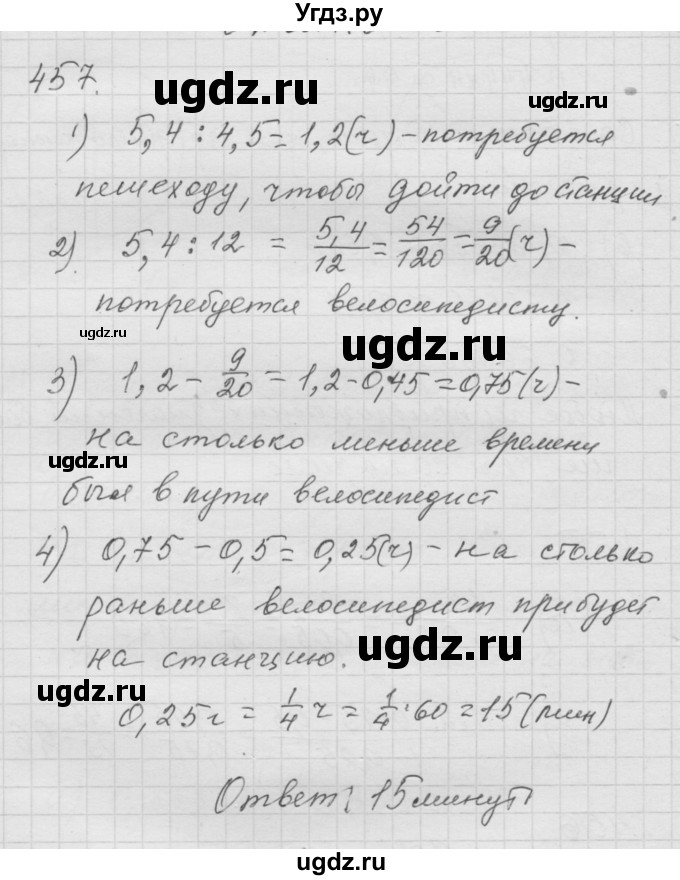 Угдз.ру
457.
ugdz.ru
ugdz.ru
1) 5,4 : 4,5 = 1,2(ч) – потребуется
пешеходу, чтобы дойти до станции
2) 5,4 : 12 = 5,4/12 = 54/120 = 9/20 (ч) –
потребуется велосипедисту.
ugdz.ru
ugdz.ru
3) 1,2 – 9/20 = 1,2 – 0,45 = 0,75 (ч) –
на столько меньше времени
ugdz.ru
был в пути велосипедист
4) 0,75 – 0,5 = 0,25(ч) – на столько
раньше велосипедист прибудет
на станцию.
ugdz.ru
ugdz.ru
0,25ч = 1/4 ч = 1/4 · 60 = 15 (мин)
Ответ: 15 минут
ugdz.ru